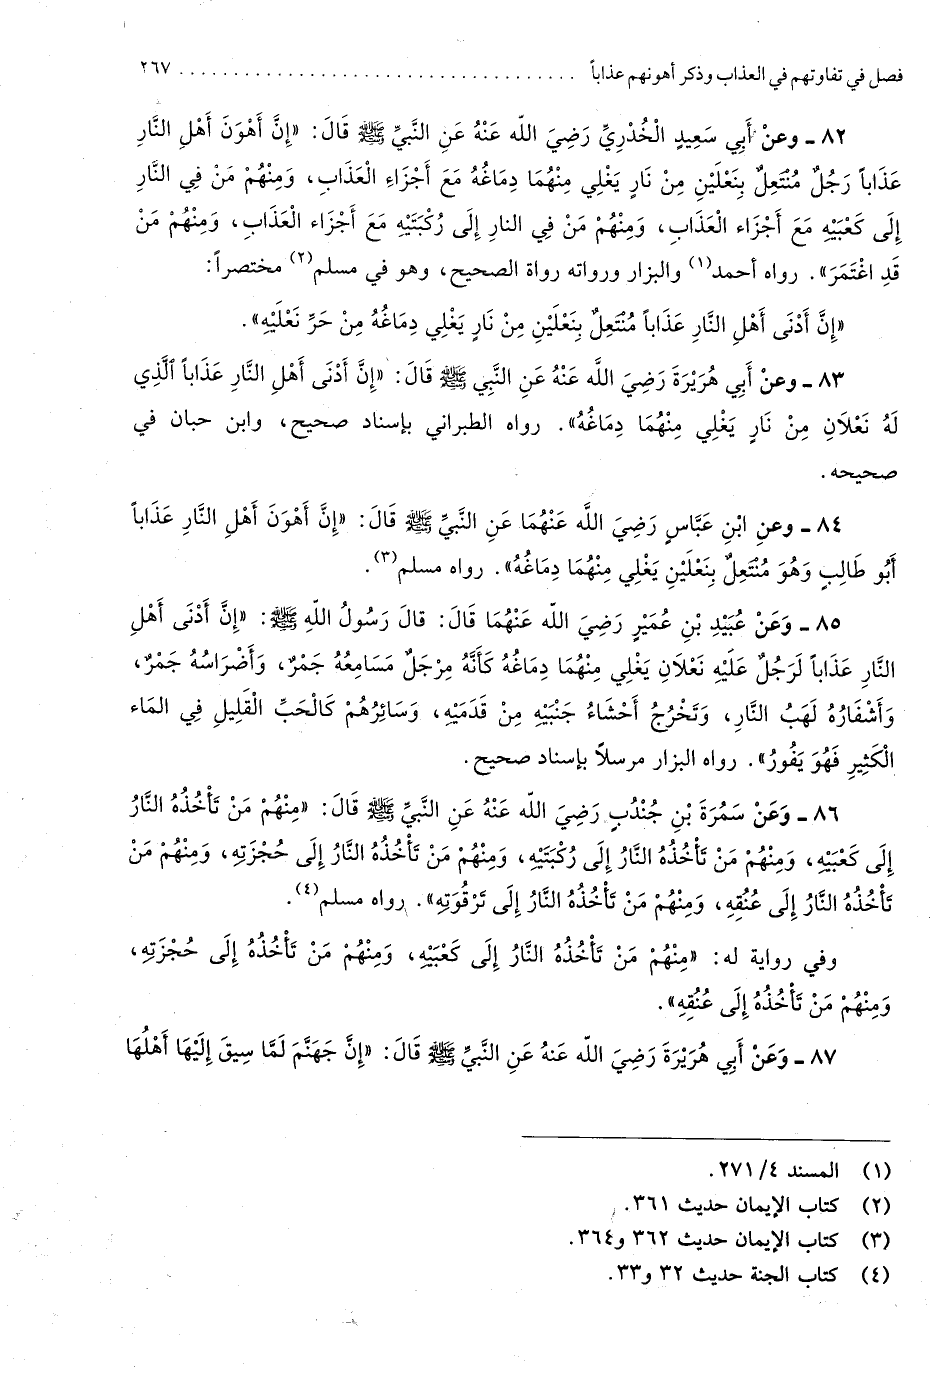 فصل في تفاوتهم في العذاب وذكر أهونهم عذاباً ..................................... ٢٦٧
٨٢ ـ وعنْ أَبِي سَعِيدٍ الْخُدْرِيِّ رَضِيَ اللّه عَنْهُ عَنِ النبيِّ ﷺ قَالَ: «إِنَّ أَهْوَنَ أَهْلِ النَّارِ
عَذَاباً رَجُلٌ مُنْتَعِلٌ بِنَعْلَيْنِ مِنْ نَارٍ يَغْلِي مِنْهُمَا دِمَاغُهُ مَعَ أَجْزَاءِ الْعَذَابِ، وَمِنْهُمْ مَنْ فِي النَّارِ
إِلَى كَعْبَيْهِ مَعَ أَجْزَاء الْعَذَابِ، وَمِنْهُمْ مَنْ فِي النارِ إِلَى رُكْبَتَيْهِ مَعَ أَجْزَاء الْعَذَابِ، وَمِنْهُمْ مَنْ
قَدِ اغْتَمَرَ». رواه أحمد(١) والبزار ورواته رواة الصحيح، وهو في مسلم(٢) مختصراً:
«إِنَّ أَدْنَى أَهْلِ النَّارِ عَذَاباً مُنْتَعِلٌ بِنَعْلَيْنِ مِنْ نَارٍ يَغْلِي دِمَاغُهُ مِنْ حَرِّ نَعْلَيْهِ».
٨٣ ـ وعنْ أَبِي هُرَيْرَةَ رَضِيَ اللَّه عَنْهُ عَنِ النَّبِي ﷺ قَالَ: «إِنَّ أَدْنَى أَهْلِ النَّارِ عَذَاباً الَّذِي
لَهُ نَعْلَانِ مِنْ نَارٍ يَغْلِي مِنْهُمَا دِمَاغُهُ». رواه الطبراني بإسناد صحيح، وابن حبان في
صحيحه.
٨٤ ـ وعنِ ابْنِ عَبَّاسٍ رَضِيَ اللَّه عَنْهُمَا عَنِ النَّبيِّ ﷺ قَالَ: «إِنَّ أَهْوَنَ أَهْلِ النَّارِ عَذَاباً
أَبُو طَالِبٍ وَهُوَ مُنْتَعِلٌ بِنَعْلَيْنِ يَغْلِي مِنْهُمَا دِمَاغُهُ». رواه مسلم(٣).
٨٥ ـ وَعَنْ عُبَيْدِ بْنِ عُمَيْرٍ رَضِيَ اللّه عَنْهُمَا قَالَ: قالَ رَسُولُ اللّهِ ﷺ: «إِنَّ أَدْنَى أَهْلِ
النَّارِ عَذَاباً لَرَجُلٌ عَلَيْهِ نَعْلَانِ يَغْلِي مِنْهُمَا دِمَاغُهُ كَأَنَّهُ مِرْجَلٌ مَسَامِعُهُ جَمْرٌ، وَأَضْرَاسُهُ جَمْرٌ،
وَأَشْفَارُهُ لَهَبُ النَّارِ، وَتَخْرُجُ أَحْشَاءُ جَنْبَيْهِ مِنْ قَدَمَيْهِ، وَسَائِرُهُمْ كَالْحَبِّ الْقَلِيلِ فِي المَاء
الْكَثِيرِ فَهُوَ يَفُورُ». رواه البزار مرسلاً بإسناد صحيح.
٨٦ ـ وَعَنْ سَمُرَةَ بْنِ جُنْدُبٍ رَضِيَ اللّه عَنْهُ عَنِ النَّبيِّ ﷺ قَالَ: «مِنْهُمْ مَنْ تَأْخُذُهُ النَّارُ
إِلَى كَعْبَيْهِ، وَمِنْهُمْ مَنْ تَأْخُذُهُ النَّارُ إِلَى رُكْبَتَيْهِ، وَمِنْهُمْ مَنْ تَأْخُذُهُ النَّارُ إِلَى حُجْزَتِهِ، وَمِنْهُمْ مَنْ
تَأْخُذُهُ النَّارُ إِلَى عُنُقِهِ، وَمِنْهُمْ مَنْ تَأْخُذُهُ النَّارُ إِلَى تَرْقُوَتِهِ». رواه مسلم(٤).
وفي رواية له: «مِنْهُمْ مَنْ تَأْخُذُهُ النَّارُ إِلَى كَعْبَيْهِ، وَمِنْهُمْ مَنْ تَأْخُذُهُ إِلَى حُجْزَتِهِ،
وَمِنْهُمْ مَنْ تَأْخُذُهُ إِلَى عُنُقِهِ».
٨٧ ـ وَعَنْ أَبِي هُرَيْرَةَ رَضِيَ اللّه عَنهُ عَنِ النَّبيِّ ﷺ قَالَ: «إِنَّ جَهَنَّمَ لَمَّا سِيقَ إِلَيْهَا أَهْلُهَا
(١) المسند ٤/ ٢٧١.
(٢) كتاب الإيمان حديث ٣٦١.
(٣) كتاب الإيمان حديث ٣٦٢ و٣٦٤.
(٤) كتاب الجنة حديث ٣٢ و٣٣.